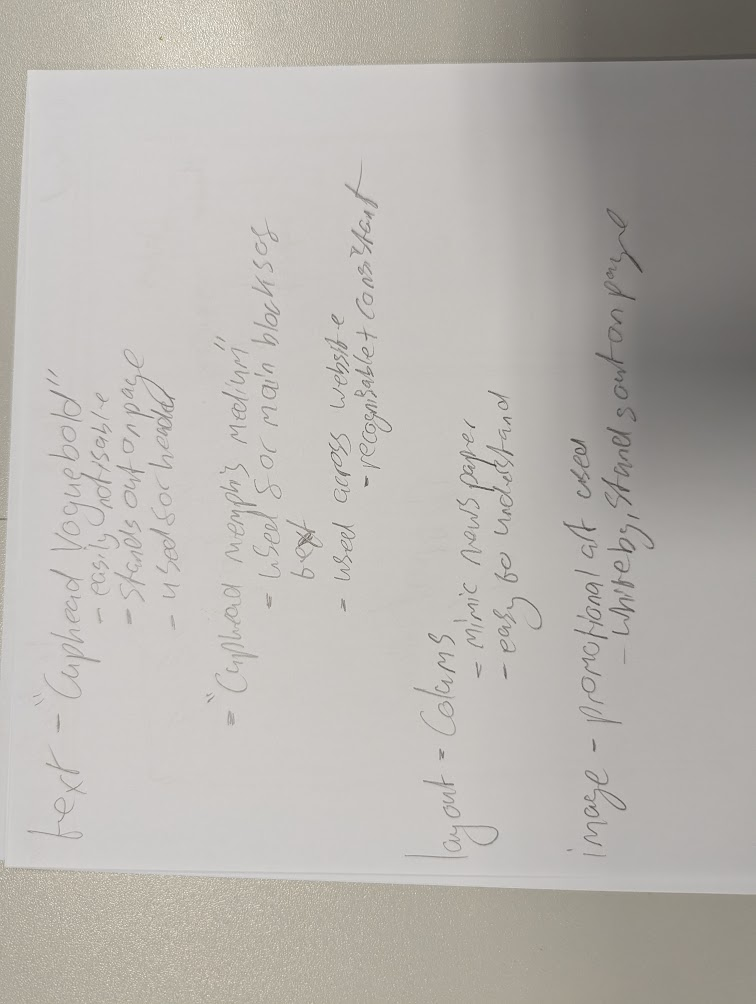 text - "Cuphead Vogue bold"
- easily notisable
- Stands out on page
- used for header
- "Cuphead memphis medium"
- used for main blocks of
text
- used across website
- recognisable + consistant
layout - Colums
- mimic news paper
- easy to understand
image - promotional art used
- white bg, stands out on page